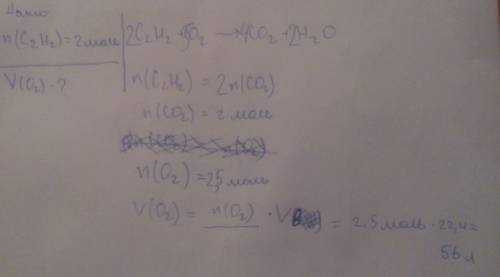 Дано
n(C₂H₂)=2 моль
V(O₂)-?
2C₂H₂+5O₂→4CO₂+2H₂O
n(C₂H₂)=2n(CO₂)
n(CO₂)=2 моль
n(O₂)=2,5 моль
V(O₂)=n(O₂)·V = 2,5 моль·22,4=
56 л